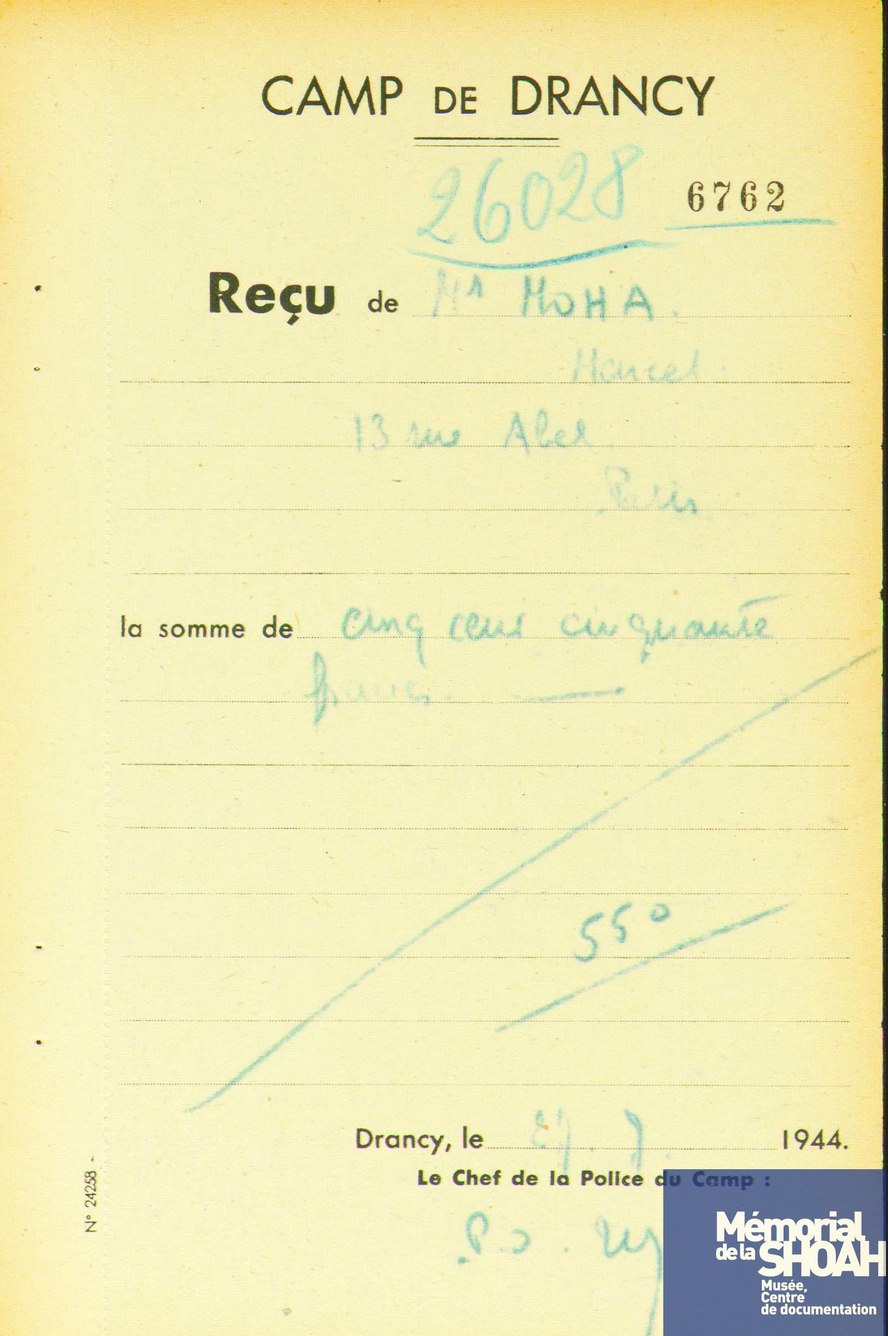 CAMP DE DRANCY
26028
6762
Reçu de Mr MOHA.
Marcel
13 rue Abel
Paris
la somme de cinq cent cinquante
francs.
550
Drancy, le 27.7. 1944.
Le Chef de la Police du Camp :
P.O.
N° 24258 -
Mémorial
de la SHOAH
Musée,
Centre
de documentation